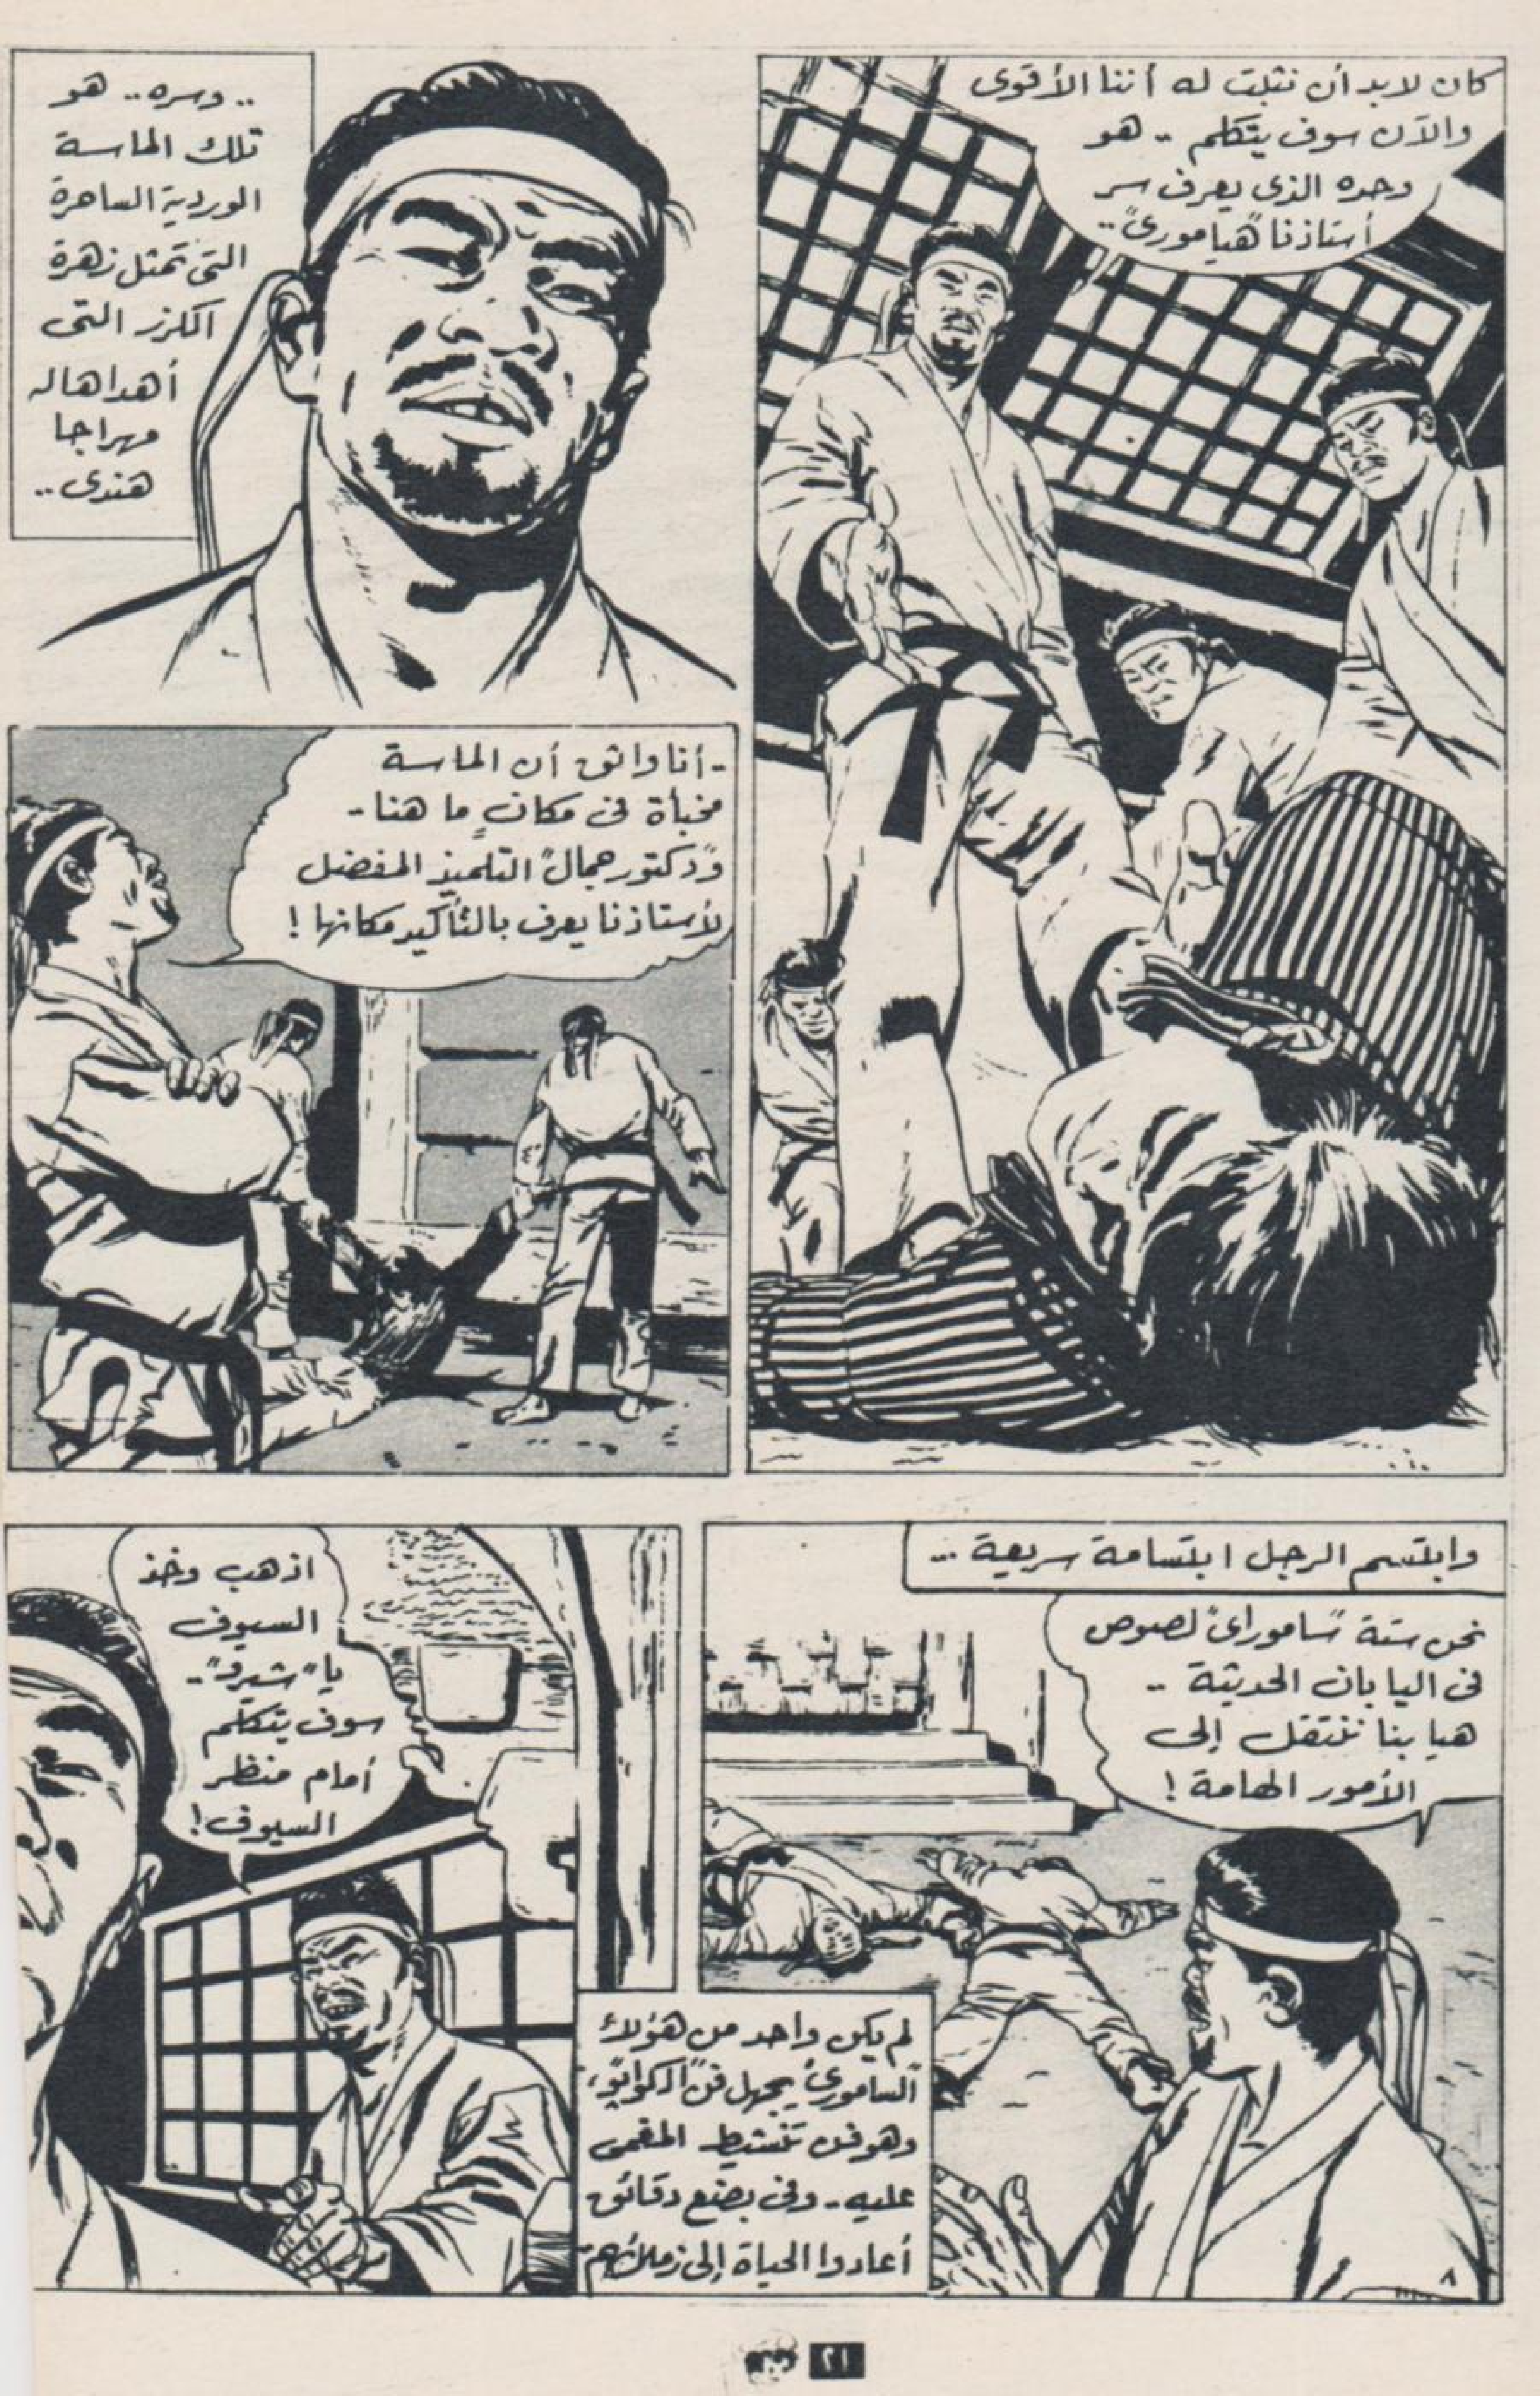 كان لابد أن نثبت له أننا الأقوى
والآن سوف يتكلم .. هو
وحده الذى يعرف سر
أستاذنا "هيامورى"..
.. وسره .. هو
تلك الماسة
الوردية الساحرة
التى تمثل زهرة
الكرز التى
أهداها له
مهراجا
هندى ..
- أنا واثق أن الماسة
مخبأة فى مكانٍ ما هنا -
و"دكتور جمال" التلميذ المفضل
لأستاذنا يعرف بالتأكيد مكانها !
وابتسم الرجل ابتسامة سريعة ...
نحن ستة "ساموراى" لصوص
فى اليابان الحديثة ..
هيا بنا ننتقل إلى
الأمور الهامة !
لم يكن واحد من هؤلاء
"السامورى" يجهل فن
وهو فن تنشيط المغمى
عليه - وفى بضع دقائق
أعادوا الحياة إلى زملائهم
اذهب وخذ
السيوف
يا "شيرو" ..
سوف يتكلم
أمام منظر
السيوف !
٨
٢١